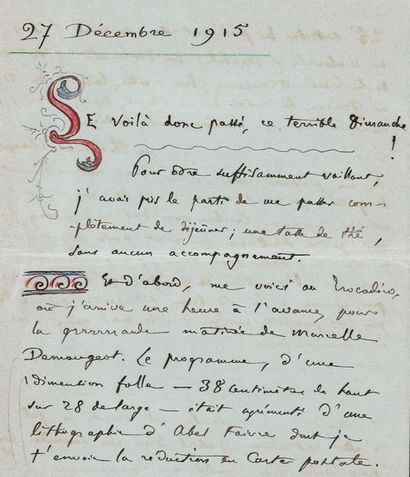 27 Décembre 1915
LE voilà donc passé, ce terrible Dimanche !
Pour être suffisamment vaillant,
j'avais pris le parti de me passer com-
plètement de déjeûner ; une tasse de thé,
sans aucun accompagnement.
Et d'abord, me voici au Trocadéro,
où j'arrive une heure à l'avance, pour
la grrrrrande matinée de Marcelle
Demougeot. Le programme, d'une
dimention folle — 38 centimètres de haut
sur 28 de large — était agrémenté d'une
lithographie d'Abel Faivre dont je
t'envoie la réduction en Carte postale.